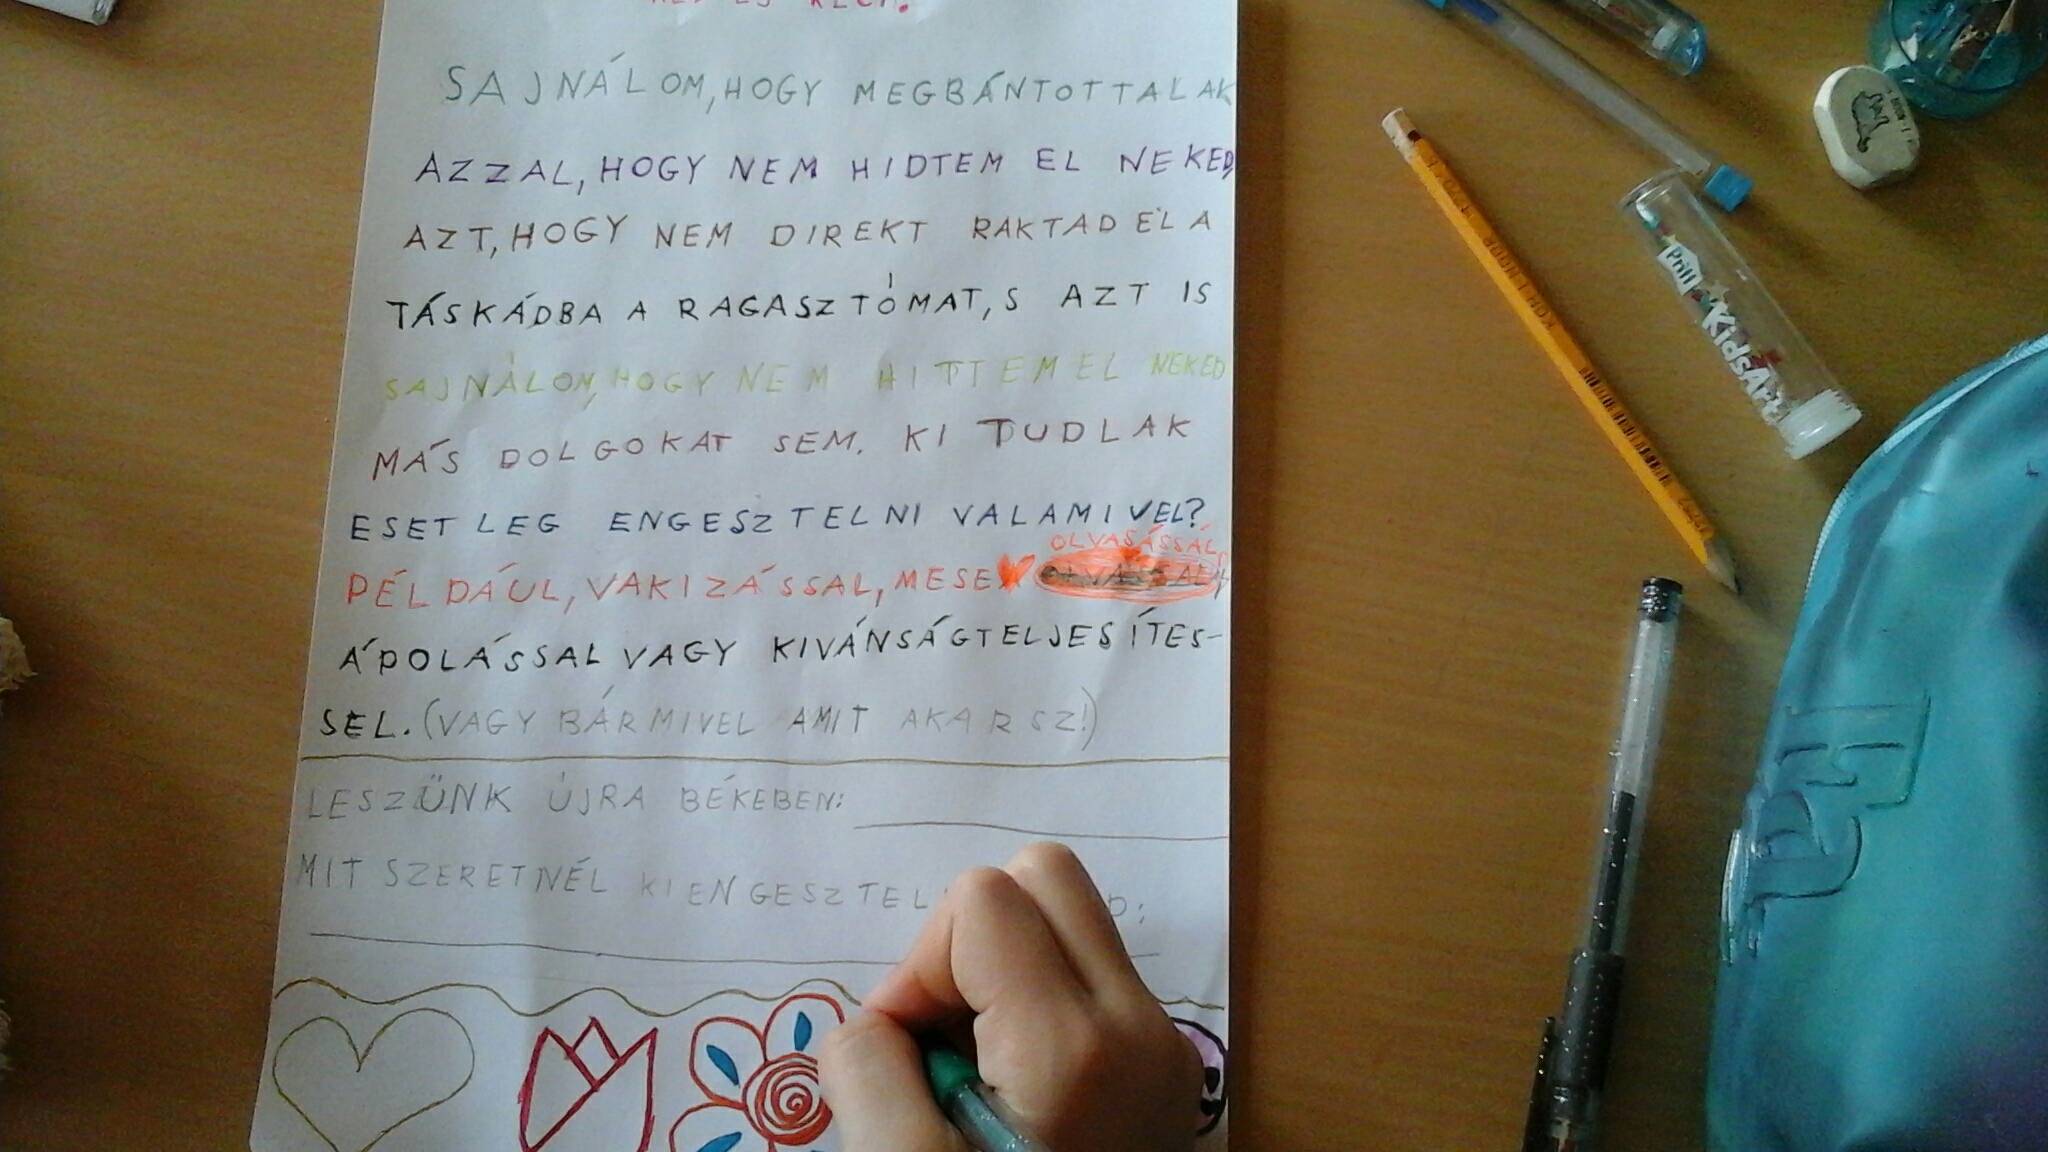 SAJNÁLOM, HOGY MEGBÁNTOTTALAK
AZZAL, HOGY NEM HIDTEM EL NEKED,
AZT, HOGY NEM DIREKT RAKTAD EL A
TÁSKÁDBA A RAGASZTÓMAT, S AZT IS
SAJNÁLOM, HOGY NEM HITTEM EL NEKED
MÁS DOLGOKAT SEM. KI TUDLAK
ESETLEG ENGESZTELNI VALAMIVEL?
OLVASÁSSAL,
PÉLDÁUL, VAKIZÁSSAL, MESE
ÁPOLÁSSAL VAGY KIVÁNSÁGTELJESÍTES-
SEL. (VAGY BÁRMIVEL AMIT AKARSZ!)
LESZÜNK ÚJRA BÉKEBEN:
MIT SZERETNÉL KIENGESZTEL
Pritt
KidsArt
Pritt